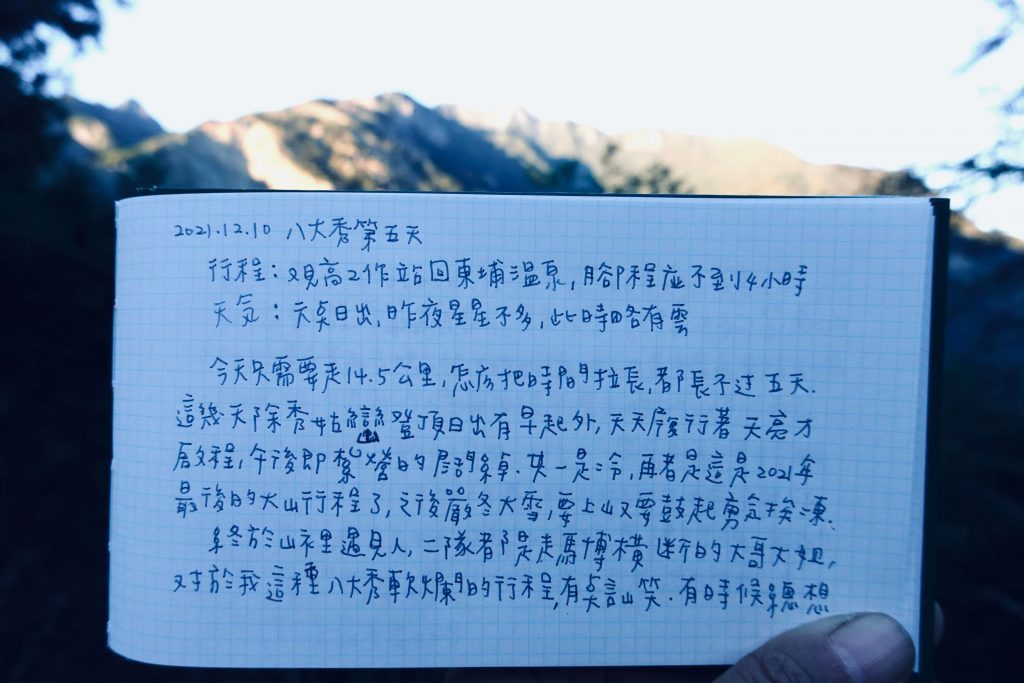 2021.12.10 八大秀第五天
行程：观高工作站回東埔溫泉,腳程應不到4小時
天気：天気日出,昨夜星星不多,此時略有雲
今天只需要走14.5公里,怎麼把時間拉長,都長不过五天.
這幾天除秀姑巒登頂日出有早起外,天天履行著天亮才
啟程,午後即紮營的 其一是冷,再者是這是2021年
最後的大山行程了,之後嚴冬大雪,要上山又要鼓起勇氣挨凍.
終於山裡遇見人,二隊都是走馬博橫断的大哥大姐,
対於我這種八大秀軟爛的行程,有奌訕笑.有時候總想